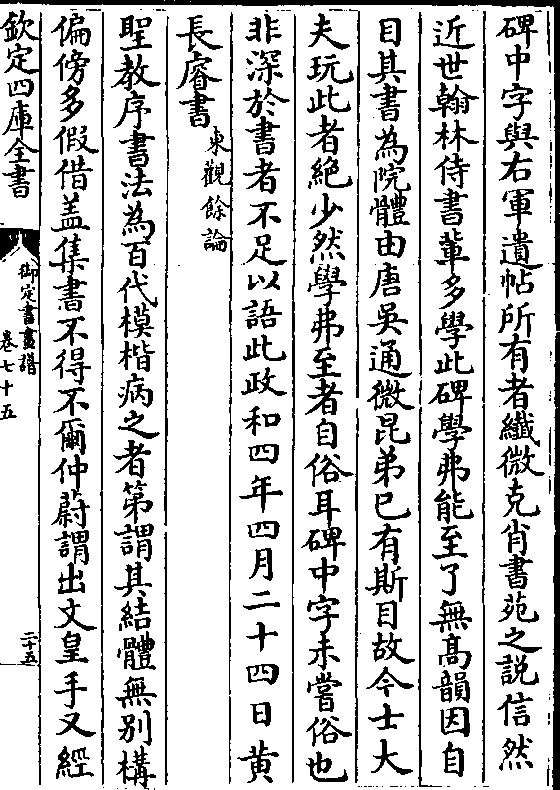 碑中字與右軍遺帖所有者纖微克肖書苑之説信然
近世翰林侍書輩多學此碑學弗能至了無髙韻因自
目其書為院體由唐吳通微昆弟已有斯目故今士大
夫玩此者絶少然學弗至者自俗耳碑中字未嘗俗也
非深於書者不足以語此政和四年四月二十四日黄
長睿書東觀餘論
聖教序書法為百代模楷病之者第謂其結體無别構
偏傍多假借盖集書不得不爾仲蔚謂出文皇手又經
欽定四庫全書
御定書畫譜
卷七十五
二十五